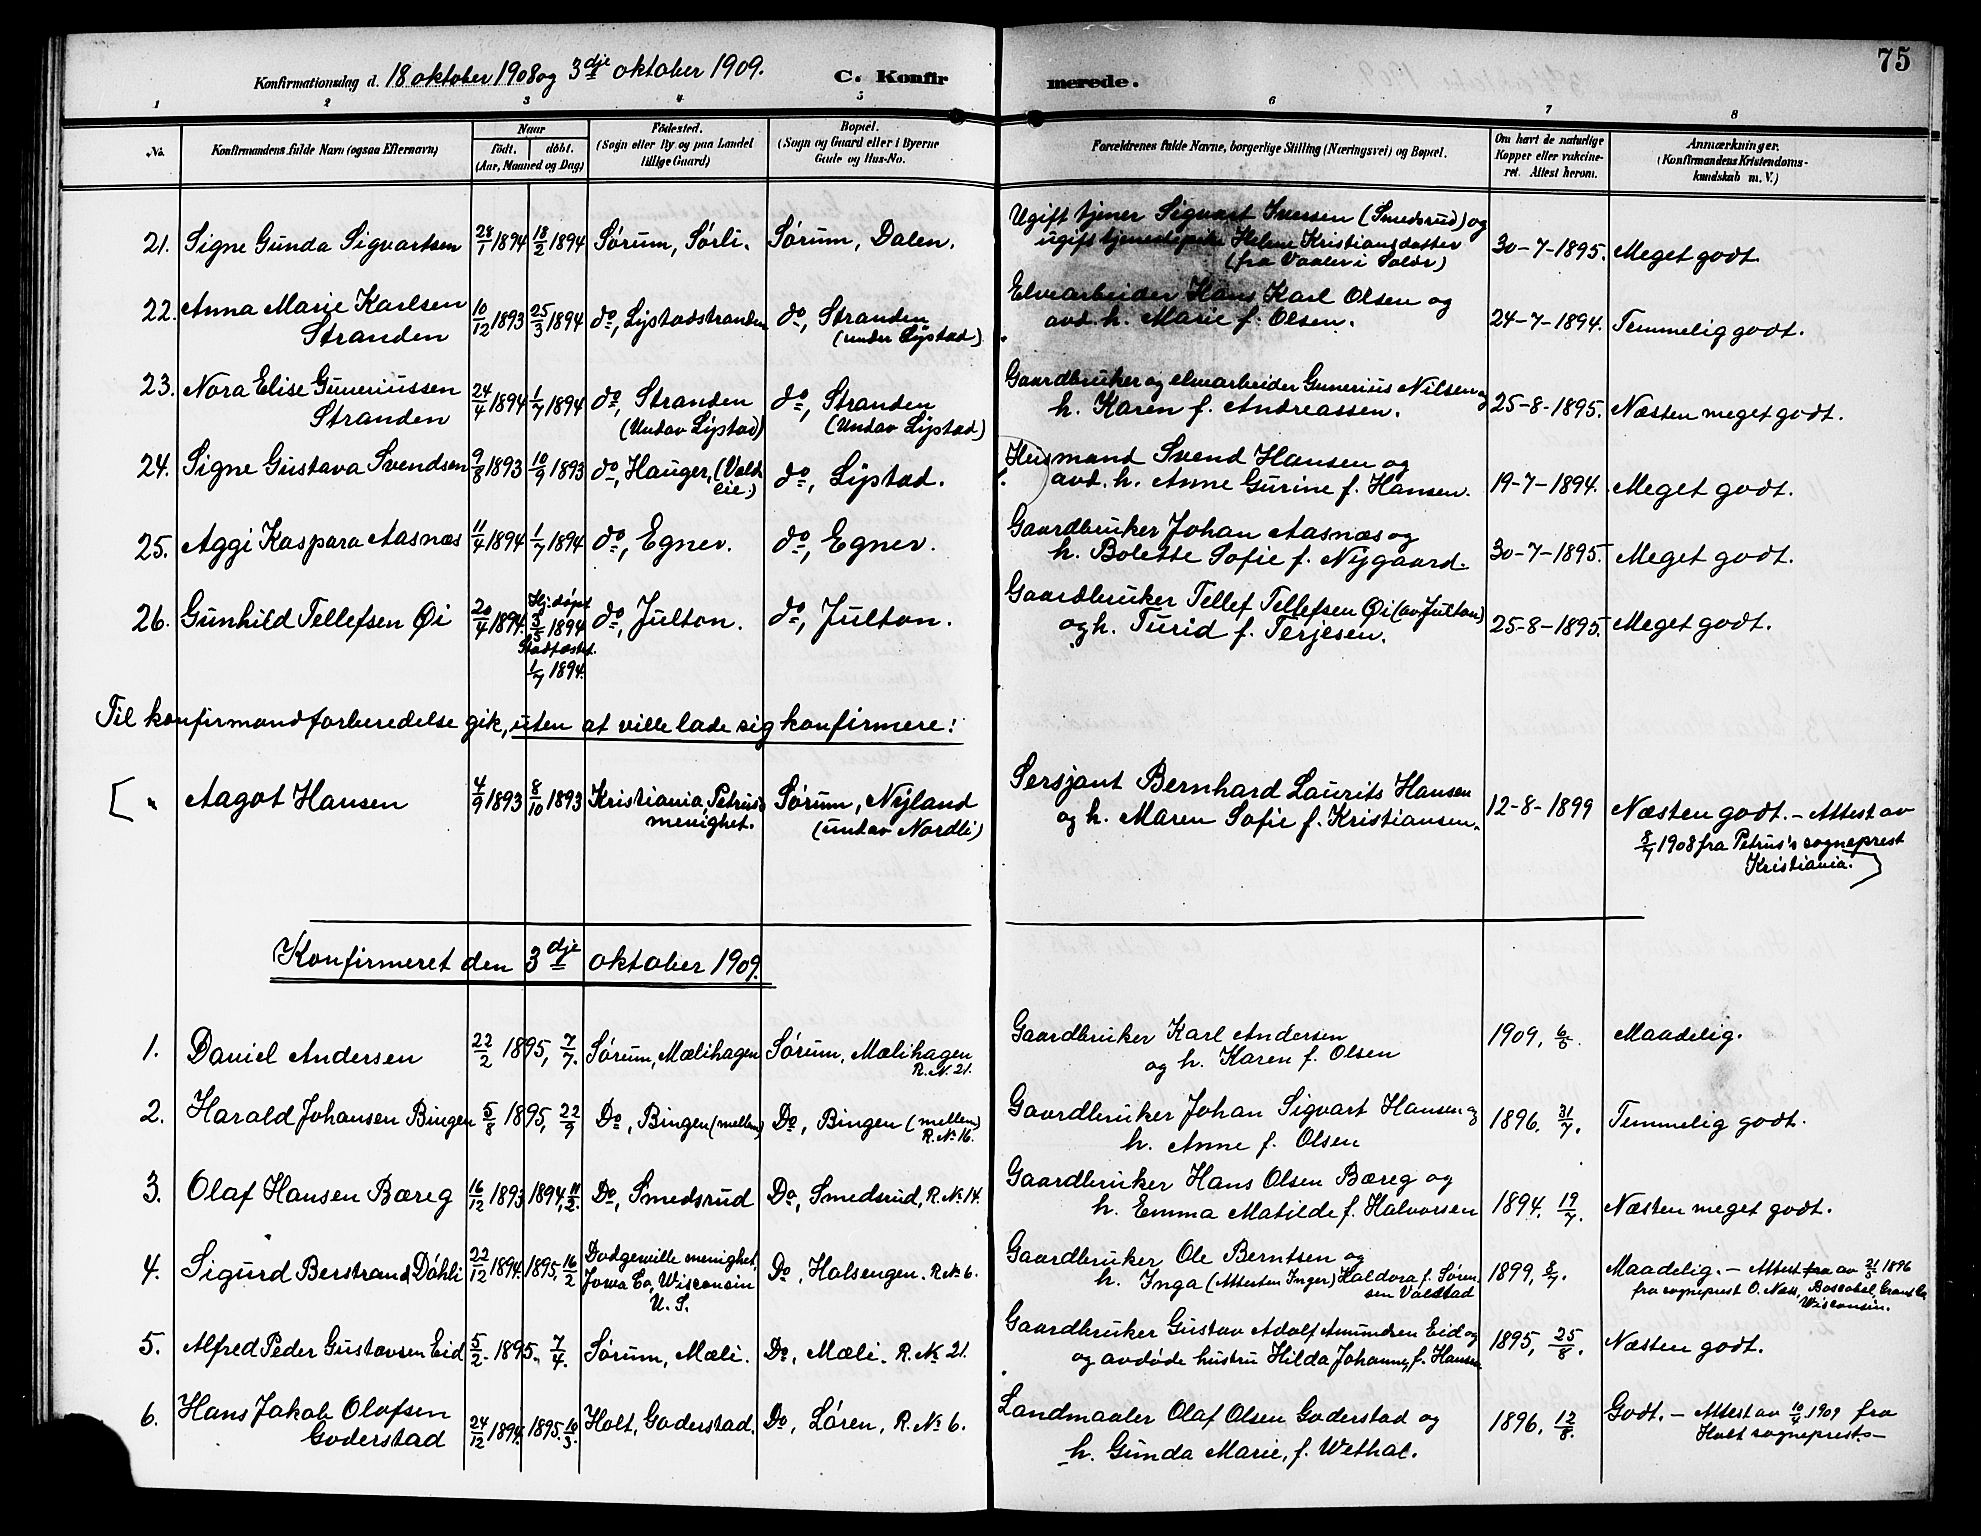 75
Konfirmationsdag d. 18 oktober 1908 og 3dje oktober 1909. C. Konfirmerede.
1 2 3 4 5 6 7 8
No. Konfirmandens fulde Navn (ogsaa Efternavn) Naar født. døbt. (Aar, Maaned og Dag) Fødested. (Sogn eller By og paa Landet tillige Gaard) Bopæl. (Sogn og Gaard eller i Byerne Gade og Hus-No. Forældrenes fulde Navne, borgerlige Stilling (Næringsvei) og Bopæl. Om havt de naturlige Kopper eller vakcineret. Attest herom. Anmærkninger. (Konfirmandens Kristendomskundskab m. V.)
21. Signe Gunda Sigvartsen 28/1 1894 18/2 1894 Sørum, Sørli. Sørum, Dalen. Ugift tjener Sigvart Iversen (Smedsrud) og
ugift tjenestepike Helene Kristiansdatter
(fra Vaaler i Solør) 30-7-1895. Meget godt.
22. Anna Marie Karlsen
Stranden 10/12 1893 25/3 1894 do, Lystadstranden do, Stranden
(under Lystad) Elvearbeider Hans Karl Olsen og
avd. h. Marie f. Olsen. 24-7-1894. Temmelig godt.
23. Nora Elise Guneriussen
Stranden 24/4 1894 1/7 1894 do, Stranden
(Undav Lystad) do, Stranden
(Undav Lystad) Gaardbruker og elvearbeider Gunerius Nilsen og
h. Karen f. Andreassen. 25-8-1895. Næsten meget godt.
24. Signe Gustava Svendsen 9/8 1893 10/9 1893 do, Hauger, (Vald-
eie) do, Lystad. Husmand Svend Hansen og
avd. h. Anne Gurine f. Hansen. 19-7-1894. Meget godt.
25. Aggi Kaspara Aasnæs 11/4 1894 1/7 1894 do, Egner. do, Egner. Gaardbruker Johan Aasnæs og
h. Bolette Sofie f. Nygaard. 30-7-1895. Meget godt.
26. Gunhild Tellefsen Øi 20/4 1894. Hj. døpt
3/5 1894
Stadfæstet.
1/7 1894. do, Julton. do, Julton. Gaardbruker Tellef Tellefsen Øi (av Julton)
og h. Turid f. Terjesen. 25-8-1895. Meget godt.
Til konfirmandforberedelse gik, uten at ville lade sig konfirmere:
[ " Aagot Hansen 4/9 1893 8/10 1893 Kristiania, Petrus's
menighet. Sørum, Nyland
(undav Nordli) Sersjant Bernhard Laurits Hansen
og h. Maren Sofie f. Kristiansen. 12-8-1899 Næsten godt. - Attest av
8/7 1908 fra Petrus's sogneprest
Kristiania. ]
Konfirmeret den 3dje oktober 1909.
1. Daniel Andersen 22/2 1895, 7/7. Sørum, Mælihagen Sørum, Mælihagen
R. N. 21. Gaardbruker Karl Andersen
og h. Karen f. Olsen 1909, 6/6. Maadelig.
2. Harald Johansen Bingen 5/8 1895, 22/9 Do, Bingen (mellem) Do, Bingen (mellem)
R. No 16. Gaardbruker Johan Sigvart Hansen og
h. Anne f. Olsen 1896, 31/7. Temmelig godt.
3. Olaf Hansen Bæreg 16/12 1893 1894, 11/2. Do, Smedsrud Do, Smedsrud, R. No 14. Gaardbruker Hans Olsen Bæreg og
h. Emma Matilde f. Halvorsen 1894. 19/7. Næsten meget godt.
4. Sigurd Berstrand Dahli 22/12 1894. 1895, 16/2 Dodgeville menighet,
Jowa Co, Wisconsin
U. S. Do, Halsengen. R. No 6. Gaardbruker Ole Berntsen og
h. Inga (Attesten Inger) Haldora f. Søren-
sen Valstad 1899, 8/7. Maadelig. - Attest fra av 21/3 1896
fra sogneprest O. Næss, Boscobel, Grant Co
Wisconsin.
5. Alfred Peder Gustavsen Eid 5/2. 1895. 7/4. Sørum, Mæli. Do, Mæli. R. No 21. Gaardbruker Gustav Adolf Amundsen Eid og
og avdøde hustru Hilda Johanne, f. Hansen 1895, 25/8. Næsten godt.
6. Hans Jakob Olafsen
Goderstad 24/12 1894. 1895. 10/3. Holt, Goderstad. Do, Løren, R. No 6. Landmaaler Olaf Olsen Goderstad og
h. Gunda Marie, f. Wethal. 1896, 12/8. Godt. - Attest av 10/4 1909 fra
Holt sogneprest.-